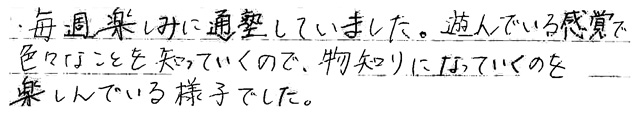 ・毎週楽しみに通塾していました。遊んでいる感覚で
色々なことを知っていくので、物知りになっていくのを
楽しんでいる様子でした。